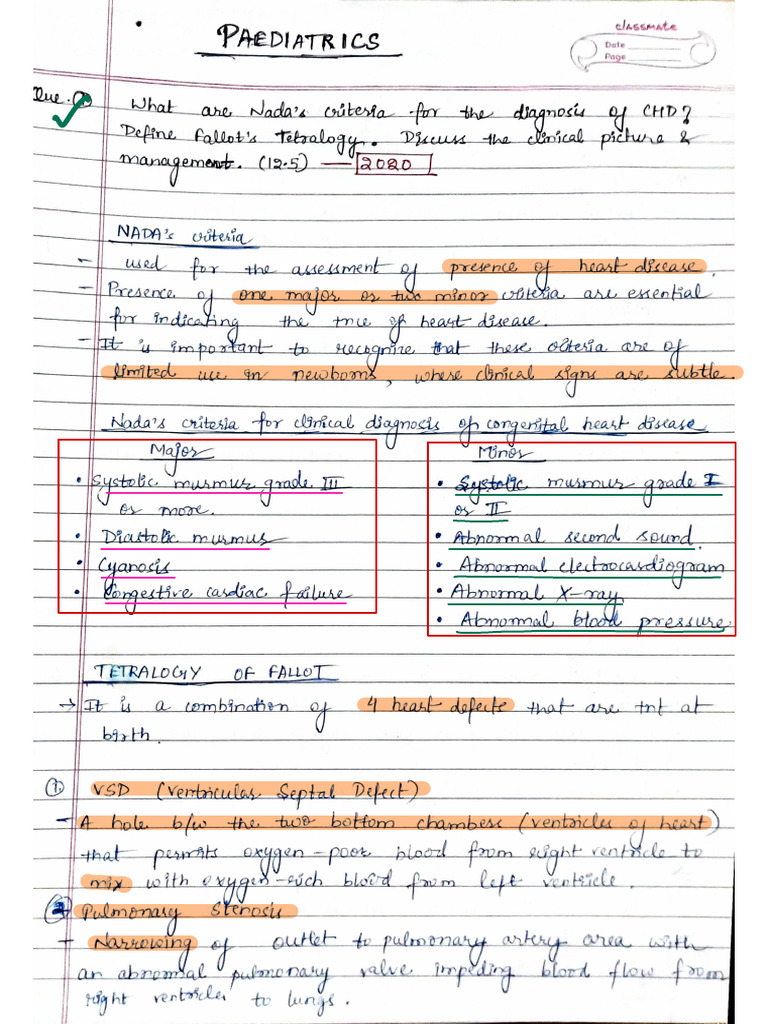 PAEDIATRICS
classmate
Date
Page
Que. 1
What are Nada's criteria for the diagnosis of CHD?
Define Fallot's Tetralogy. Discuss the clinical picture &
management. (12.5) — 2020
NADA's criteria
- used for the assessment of presence of heart disease.
- Presence of one major or two minor criteria are essential
for indicating the tnce of heart disease.
- It is important to recognize that these criteria are of
limited use in newborns, where clinical signs are subtle.
Nada's criteria for clinical diagnosis of congenital heart disease
Major
• Systolic murmur grade III
or more.
• Diastolic murmur
• Cyanosis
• Congestive cardiac failure
Minor
• Systolic murmur grade I
or II
• Abnormal second sound.
• Abnormal electrocardiogram
• Abnormal X-ray
• Abnormal blood pressure
TETRALOGY OF FALLOT
→ It is a combination of 4 heart defects that are tnt at
birth.
① VSD (Ventricular Septal Defect)
- A hole b/w the two bottom chambers (ventricles of heart)
that permits oxygen-poor blood from right ventricle to
mix with oxygen-rich blood from left ventricle.
② Pulmonary Stenosis
- Narrowing of outlet to pulmonary artery area with
an abnormal pulmonary valve impeding blood flow from
right ventricles to lungs.